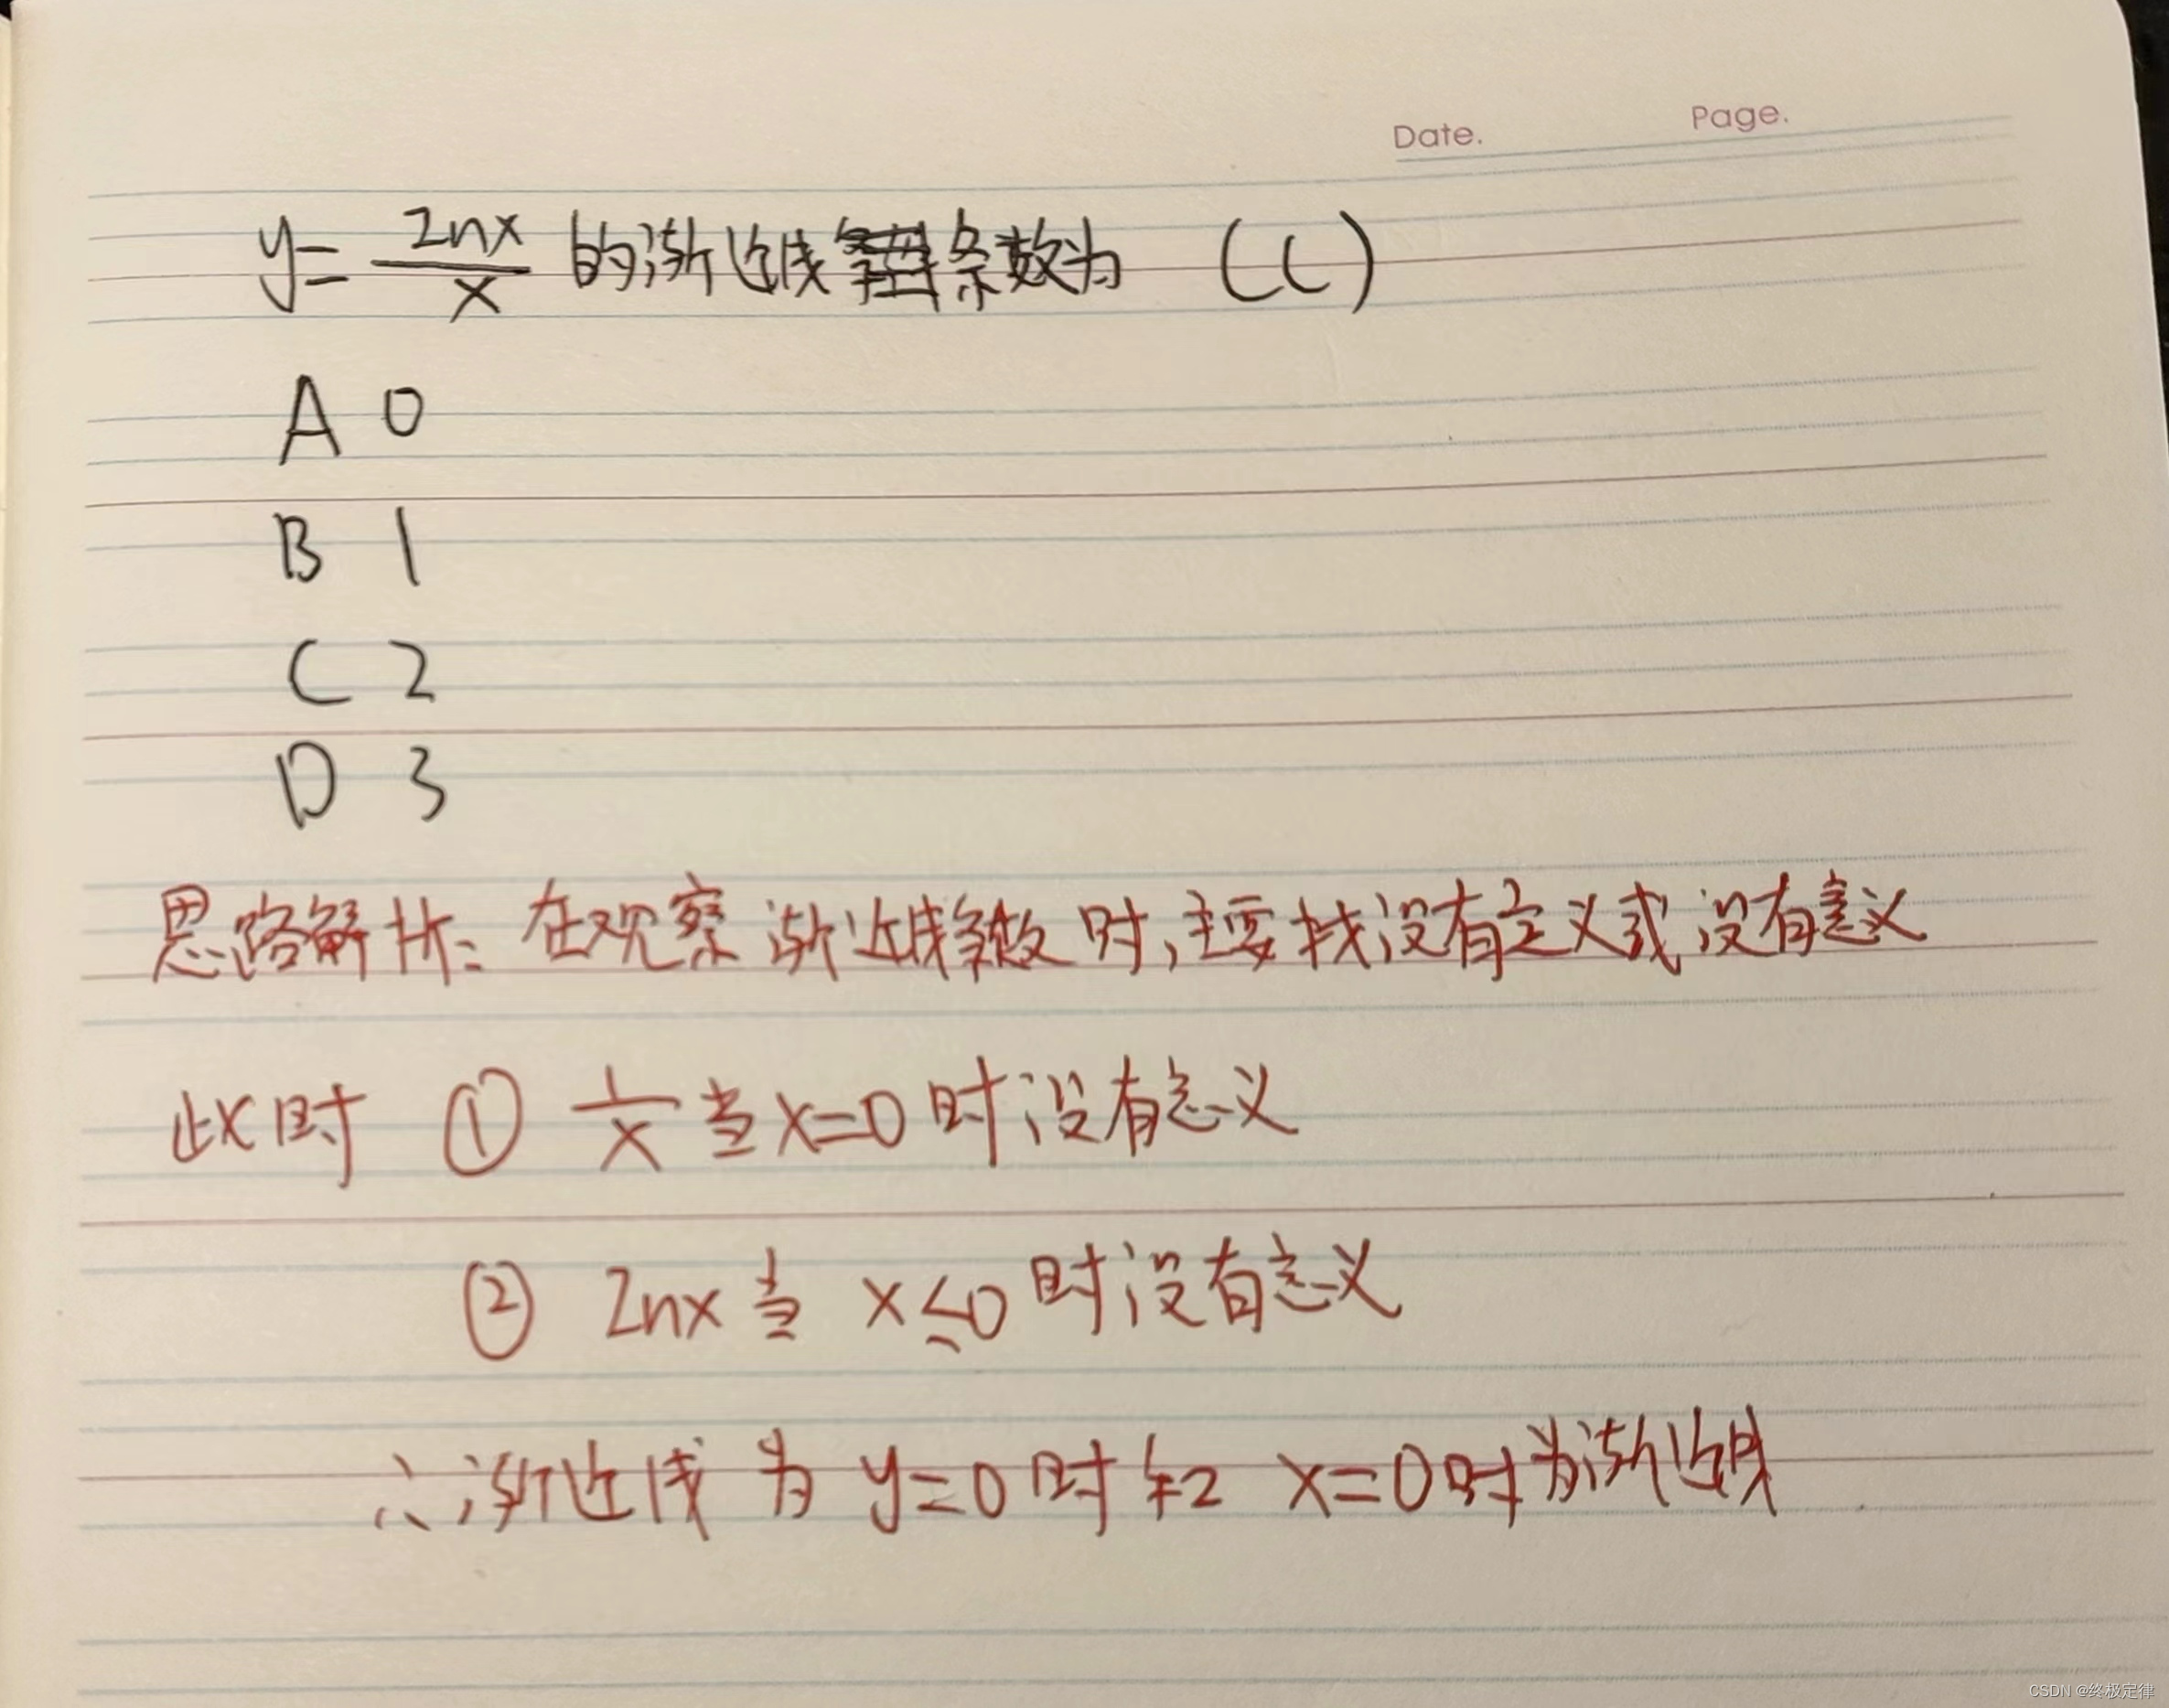 Date. Page.
y= Inx/x 的渐近线条数为 (C)
A 0
B 1
C 2
D 3
思路解析: 在观察渐近线条数时,主要找没有定义或没有意义
此时 ① 1/x 当x=0时没有意义
② Inx当 x≤0时没有意义
∴渐近线为 y=0时和 x=0时为渐近线
CSDN @终极定律